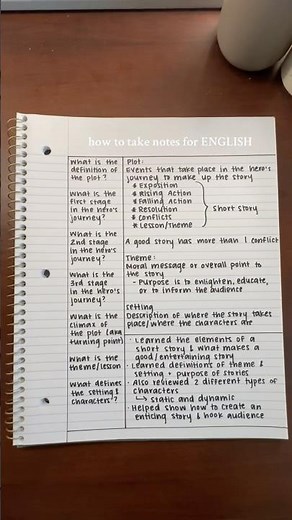 how to take notes for ENGLISH
What is the
definition of
the plot?
What is the
first stage
in the hero's
journey?
What is the
2nd stage
in the hero's
journey?
What is the
3rd stage
in the hero's
journey?
What is the
climax of
the plot (aka
turning point)
What is the
theme/lesson
What defines
the setting &
characters?
Plot:
Events that take place in the hero's
journey to make up the story
* Exposition
* Rising Action
* Falling Action
* Resolution
* Conflicts
* Lesson/Theme
Short story
A good story has more than 1 conflict
Theme:
Moral message or overall point to
the story
- Purpose is to enlighten, educate,
or to inform the audience
Setting
Description of where the story takes
place/where the characters are
· Learned the elements of a
short story & what makes a
good/entertaining story
· Learned definitions of theme &
setting + purpose of stories
· Also reviewed 2 different types of
characters
↳ static and dynamic
· Helped show how to create an
enticing story & hook audience